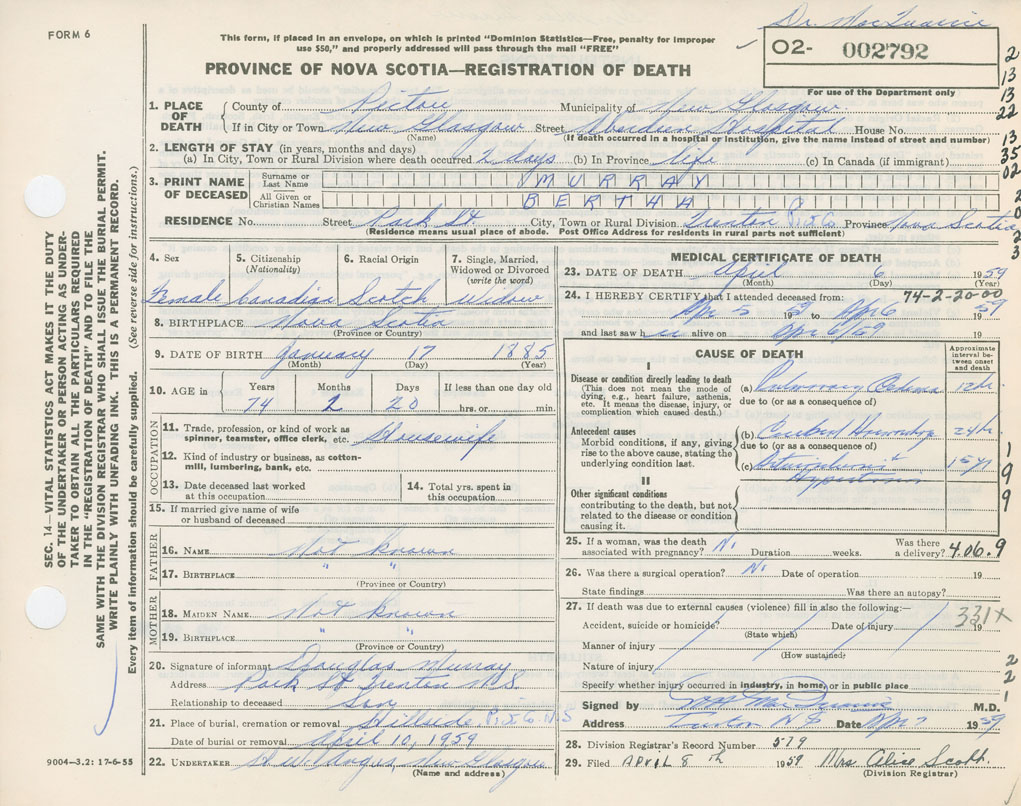 FORM 6
This form, if placed in an envelope, on which is printed "Dominion Statistics—Free, penalty for improper
use $50," and properly addressed will pass through the mail "FREE"
PROVINCE OF NOVA SCOTIA—REGISTRATION OF DEATH
Dr. MacQuarrie
O2- 002792
For use of the Department only
2
13
13
22
13
35
02
2
0
2
3
1. PLACE OF DEATH
County of Pictou Municipality of New Glasgow
If in City or Town New Glasgow Street Aberdeen Hospital House No.
(Name) (If death occurred in a hospital or institution, give the name instead of street and number)
2. LENGTH OF STAY (in years, months and days)
(a) In City, Town or Rural Division where death occurred 2 days (b) In Province life (c) In Canada (if immigrant)
3. PRINT NAME OF DECEASED
Surname or Last Name MURRAY
All Given or Christian Names BERTHA
RESIDENCE No. Street Park St. City, Town or Rural Division Trenton Province Nova Scotia
(Residence means usual place of abode. Post Office address for residents in rural parts not sufficient)
4. Sex
Female
5. Citizenship
(Nationality)
Canadian
6. Racial Origin
Scotch
7. Single, Married,
Widowed or Divorced
(write the word)
Widow
8. BIRTHPLACE Nova Scotia
(Province or Country)
9. DATE OF BIRTH January 17 1885
(Month) (Day) (Year)
10. AGE in Years Months Days If less than one day old
74 2 20 hrs. or min.
OCCUPATION
11. Trade, profession, or kind of work as
spinner, teamster, office clerk, etc. Housewife
12. Kind of industry or business, as cotton-
mill, lumbering, bank, etc.
13. Date deceased last worked
at this occupation
14. Total yrs. spent in
this occupation
15. If married give name of wife
or husband of deceased
FATHER
16. NAME Not known
17. BIRTHPLACE " "
(Province or Country)
MOTHER
18. MAIDEN NAME Not known
19. BIRTHPLACE " "
(Province or Country)
20. Signature of informant Douglas Murray
Address Park St Trenton N.S.
Relationship to deceased Son
21. Place of burial, cremation or removal Hillside N.S
Date of burial or removal April 10, 1959
22. UNDERTAKER H.W. Angus, New Glasgow
(Name and address)
MEDICAL CERTIFICATE OF DEATH
23. DATE OF DEATH April 6 1959
(Month) (Day) (Year)
24. I HEREBY CERTIFY that I attended deceased from: 74-2-20-00
Apr 5 1959 to Apr 6 1959
and last saw h er alive on Apr 6/59 19
CAUSE OF DEATH
Approximate
interval be-
tween onset
and death
I
Disease or condition directly leading to death
(This does not mean the mode of
dying, e.g., heart failure, asthenia,
etc. It means the disease, injury, or
complication which caused death.)
(a) Pulmonary Oedema 12 hr.
due to (or as a consequence of)
Antecedent causes
Morbid conditions, if any, giving
rise to the above cause, stating the
underlying condition last.
(b) Cerebral Hemorrhage 24 hr
due to (or as a consequence of)
(c) Arteriosclerosis & 15 yr
Hypertension
II
Other significant conditions
contributing to the death, but not
related to the disease or condition
causing it.
1
9
9
25. If a woman, was the death
associated with pregnancy? No Duration weeks. Was there
a delivery? 4.06.9
26. Was there a surgical operation? No Date of operation 19
State findings Was there an autopsy?
27. If death was due to external causes (violence) fill in also the following:—
331X
Accident, suicide or homicide? Date of injury 19
(State which)
Manner of injury
(How sustained)
Nature of injury
Specify whether injury occurred in industry, in home, or in public place
2
2
1
Signed by MacQuarrie M.D.
Address Trenton N S Date Apr 7 1959
28. Division Registrar's Record Number 579
29. Filed APRIL 8th 1959 Mrs Alice Scott.
(Division Registrar)
SEC. 14—VITAL STATISTICS ACT MAKES IT THE DUTY
OF THE UNDERTAKER OR PERSON ACTING AS UNDER-
TAKER TO OBTAIN ALL THE PARTICULARS REQUIRED
IN THE "REGISTRATION OF DEATH" AND TO FILE THE
SAME WITH THE DIVISION REGISTRAR WHO SHALL ISSUE THE BURIAL PERMIT.
WRITE PLAINLY WITH UNFADING INK. THIS IS A PERMANENT RECORD.
Every item of information should be carefully supplied. (See reverse side for instructions.)
9004—3.2: 17-6-55